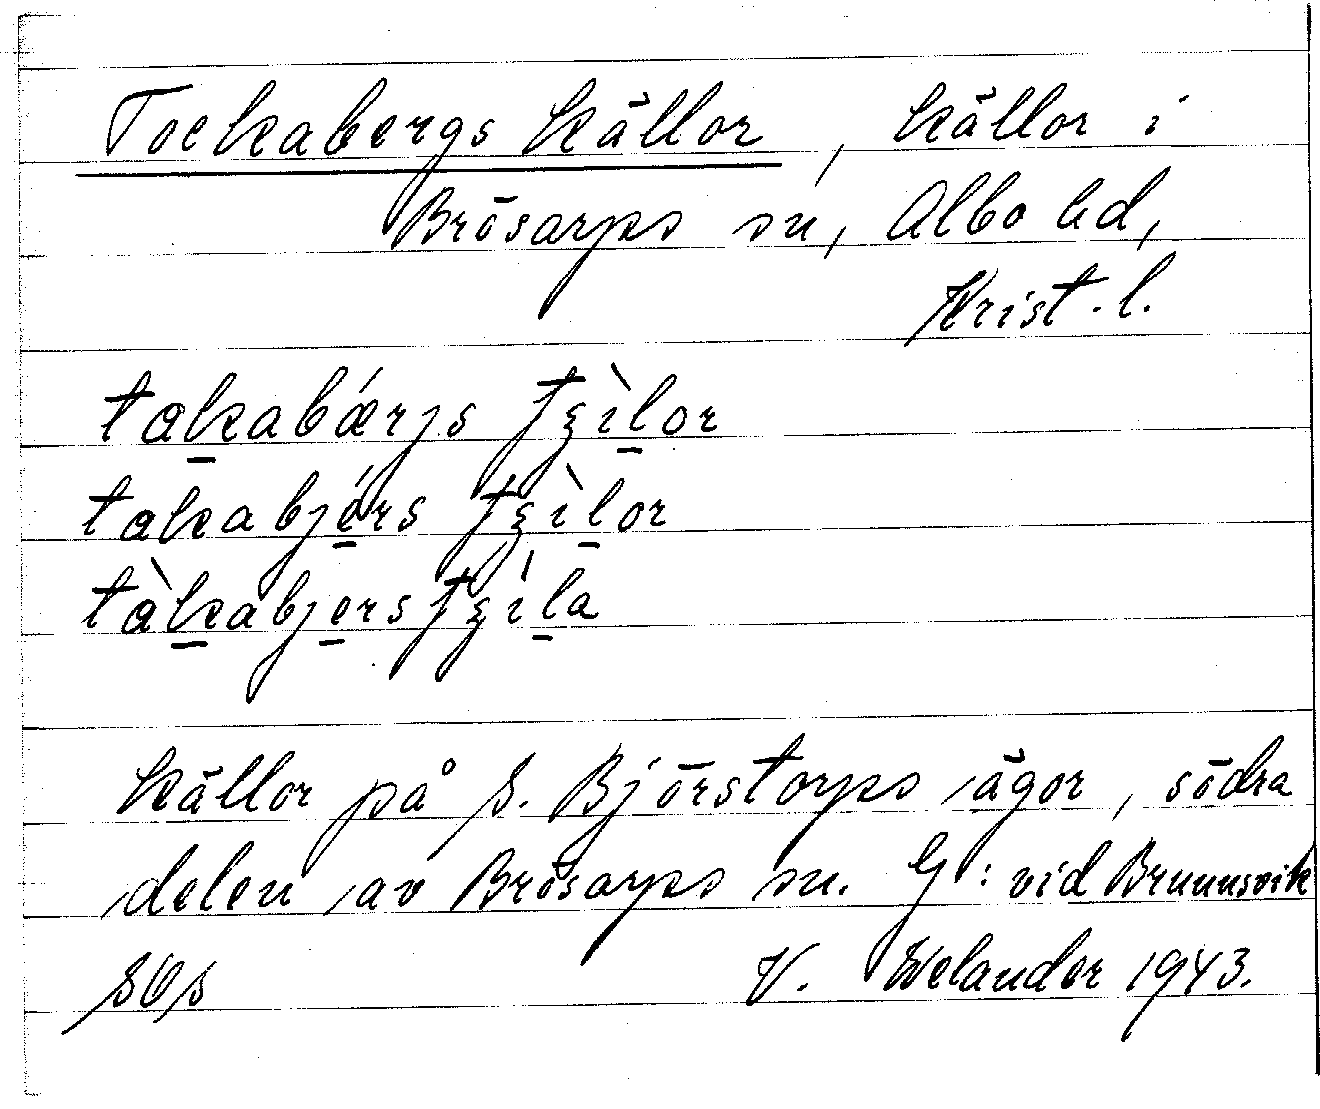 Tockabergs källor, källor i
Brösarps sn, Albo hd,
Krist. l.
takabǽrjs tʒìlor
takabjérs tʒìlor
tàkabjers tʒìla
Källor på S. Björstorps ägor, södra
delen av Brösarps sn. G: vid Brunnsvik
V. Welander 1943.